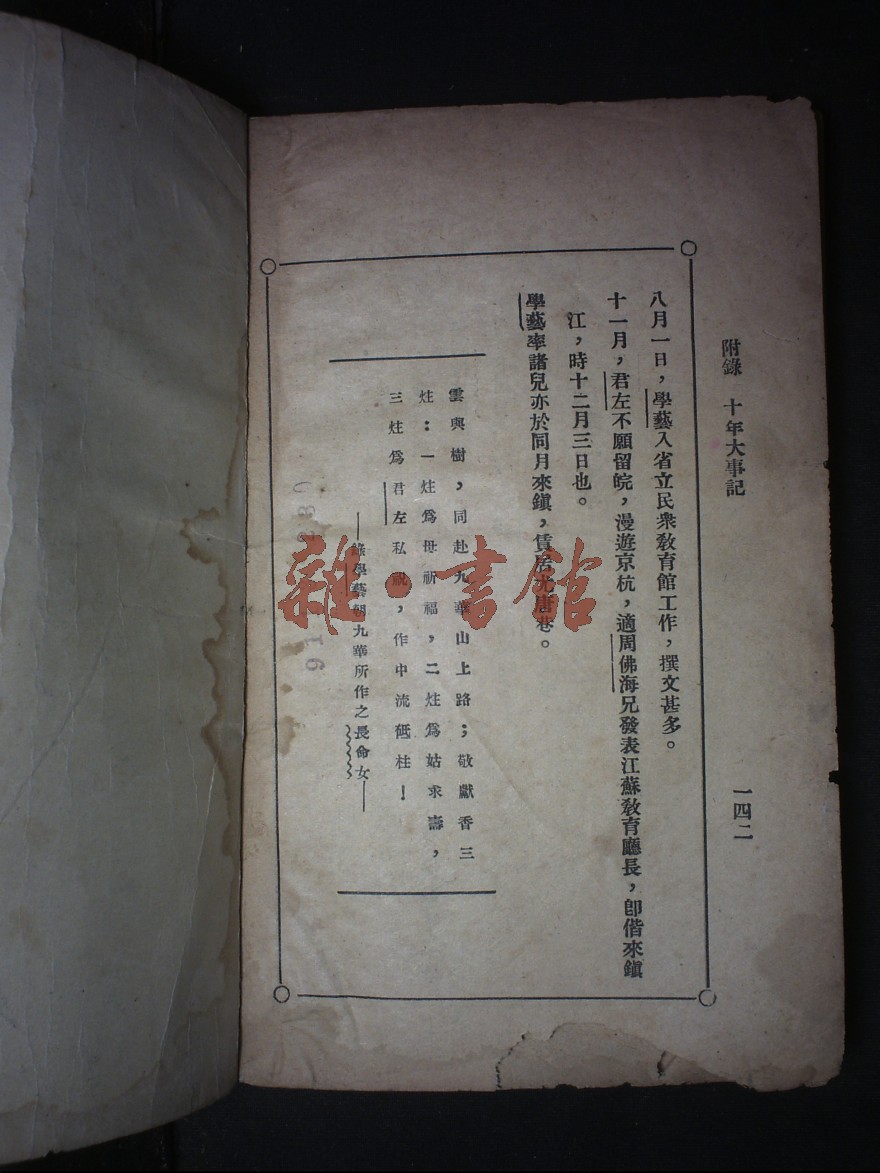 附錄　十年大事記
一四二
八月一日，學藝入省立民衆教育館工作，撰文甚多。
十一月，君左不願留皖，漫遊京杭，適周佛海兄發表江蘇教育廳長，卽偕來鎭
江，時十二月三日也。
學藝率諸兒亦於同月來鎭，賃居 巷。
雲與樹，同赴九華山上路；敬獻香三
炷：一炷爲母祈福，二炷爲姑求壽，
三炷爲君左私祝，作中流砥柱！
──錄學藝朝九華所作之長命女──
雜·書館